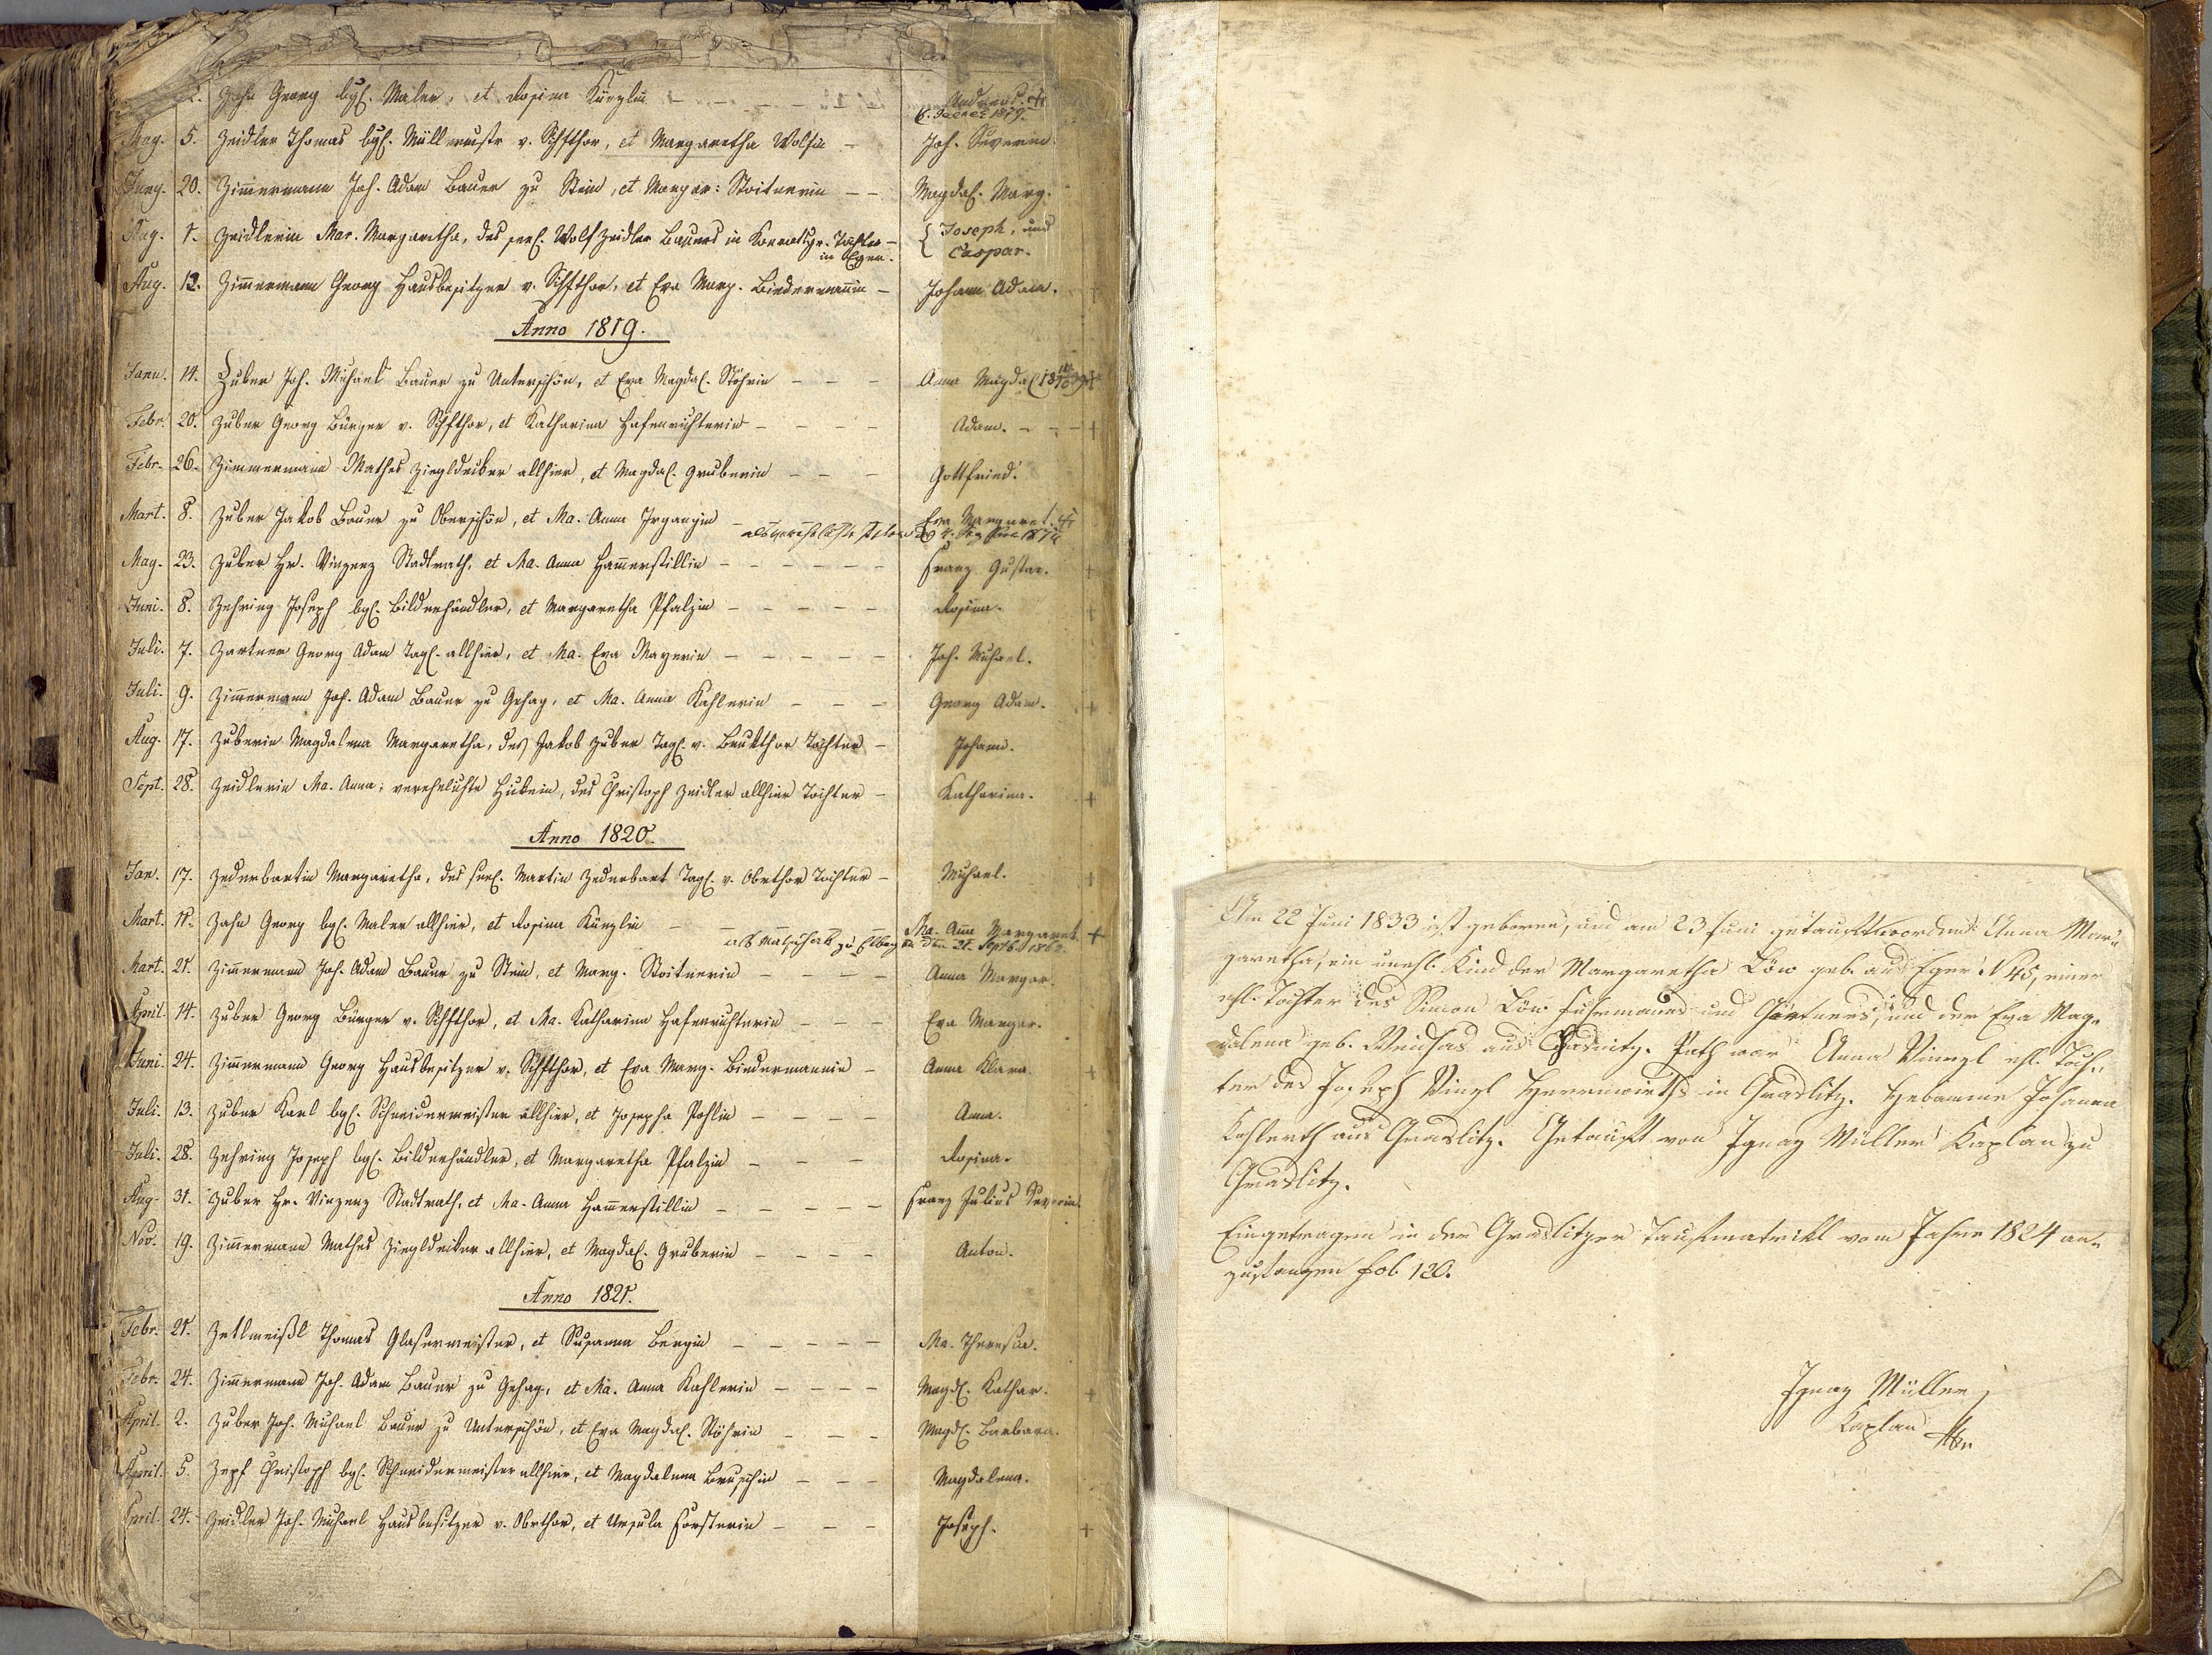 Zahn Georg bgl. Maler, et Rosina Künzlin - - - Andreas. +
6. 1879.
May. 5. Zeidler Thomas bgl. Müllermstr v. Schifthor, et Margaretha Wolfin - Joh. Severin.
Juny. 20. Zim̅ermann Joh. Adam Bauer zu Stein, et Margar: Stoitnerin - - Magdal. Marg.
Aug. 1. Zeidlerin Mar. Margaretha, des seel. Wolf Zeidler Bauers in Konradsgr. Tochter - { Joseph, und
in Eger. Caspar.
Aug. 12. Zim̅ermann Georg Hausbesitzer v. Schifthor, et Eva Marg. Biedermañin - Johann Adam. +
Anno 1819.
Janu. 14. Zuber Joh. Michael Bauer zu Unterschön, et Eva Magdal. Stöhrin - - - Anna Magdal.
Febr. 20. Zuber Georg Bürger v. Schifthor, et Katharina Hafenrichterin - - - - Adam. - - +
Febr. 26. Zimmermann Mathes Zieglдecker allhier, et Magdal. Gruberin - - - Gottfried.
Mart. 8. Zuber Jakob Bauer zu Oberschön, et Ma. Anna Irgangin - Eva Margaret. +
May. 23. Zuber Hr. Vinzenz Stadtrath, et Ma. Anna Ham̅erstillin - - - - - - Franz Gustav. +
Juni. 8. Zehring Joseph bgl. Bilderhändler, et Margaretha Pfalzin - - - - - Rosina. +
Juli. 7. Zartner Georg Adam Tagl. allhier, et Ma. Eva Mayerin - - - - - Joh. Michael.
Juli. 9. Zim̅ermann Joh. Adam Bauer zu Gehag, et Ma. Anna Kahlerin - - - Georg Adam. +
Aug. 17. Zuberin Magdalena Margaretha, des Jakob Zuber Tagl. v. Brukthor Tochter - Johann.
Sept. 28. Zeidlerin Ma. Anna, verehelichte Hükein, des Christoph Zeidler allhier Tochter - Katharina. +
Anno 1820.
Jan. 17. Zederbartin Margaretha, des seel. Martin Zederbart Tagl. v. Obethor Tochter - Michael. +
Mart. 11. Zahn Georg bgl. Maler allhier, et Rosina Künzlin - Ma. Anna Margaret. +
den 21. Septb. 1862.
Mart. 21. Zim̅ermann Joh. Adam Bauer zu Stein, et Marg. Stoitnerin - - - - Anna Margar.
April. 14. Zuber Georg Bürger v. Schifthor, et Ma. Katharina Hafenrichterin - - - Eva Margar.
Juni. 24. Zim̅ermann Georg Hausbesitzer v. Schifthor, et Eva Marg. Biedermannin - Anna Klara. +
Juli. 13. Zuber Karl bgl. Schneidermeister allhier, et Josepha Pohlin - - - - Anna.
Juli. 28. Zehring Joseph bgl. Bilderhändler, et Margaretha Pfalzin - - - Rosina.
Aug. 31. Zuber Hr. Vinzenz Stadtrath, et Ma. Anna Ham̅erstillin - - - - - Franz Julius Severin.
Nov. 19. Zim̅ermann Mathes Ziegldecker allhier, et Magdal. Gruberin - - - - Anton.
Anno 1821.
Febr. 21. Zetlmeißl Thomas Glasermeister, et Susanna Bergin - - - - - Ma. Theresia.
Febr. 24. Zim̅ermann Joh. Adam Bauer zu Gehag, et Ma. Anna Kahlerin - - - - Magdl. Kathar. +
April. 2. Zuber Joh. Michael Bauer zu Unterschön, et Eva Magdal. Stöhrin - - - Magdl. Barbara.
April. 5. Zapf Christoph bgl. Schneidermeister allhier, et Magdalena Bruschin - - - Magdalena.
April. 24. Zeidler Joh. Michael Hausbesitzer v. Obethor, et Ursula Forsterin - - - Joseph. +
Am 22 Juni 1833 ist geboren, und am 23 Juni getauft worden: Anna Mar-
garetha, ein unehl. Kind der Margaretha Löw geb. aus Eger N 45, einer
ehl. Tochter des Simon Löw Fuhrmanns und Gärtners, und der Eva Mag-
dalena geb. aus . Path war Anna Vinzl ehl. Toch-
ter des Joseph Vinzl Herrnwirths in Graslitz. Hebamme Johanna
Kohlerth aus Graslitz. Getauft von Ignaz Müller Kaplan zu
Graslitz.
Eingetragen in der Graslitzer Taufmatrikl vom Jahre 1824 an-
zufangen fol. 120.
Ignaz Müller,
Kaplan